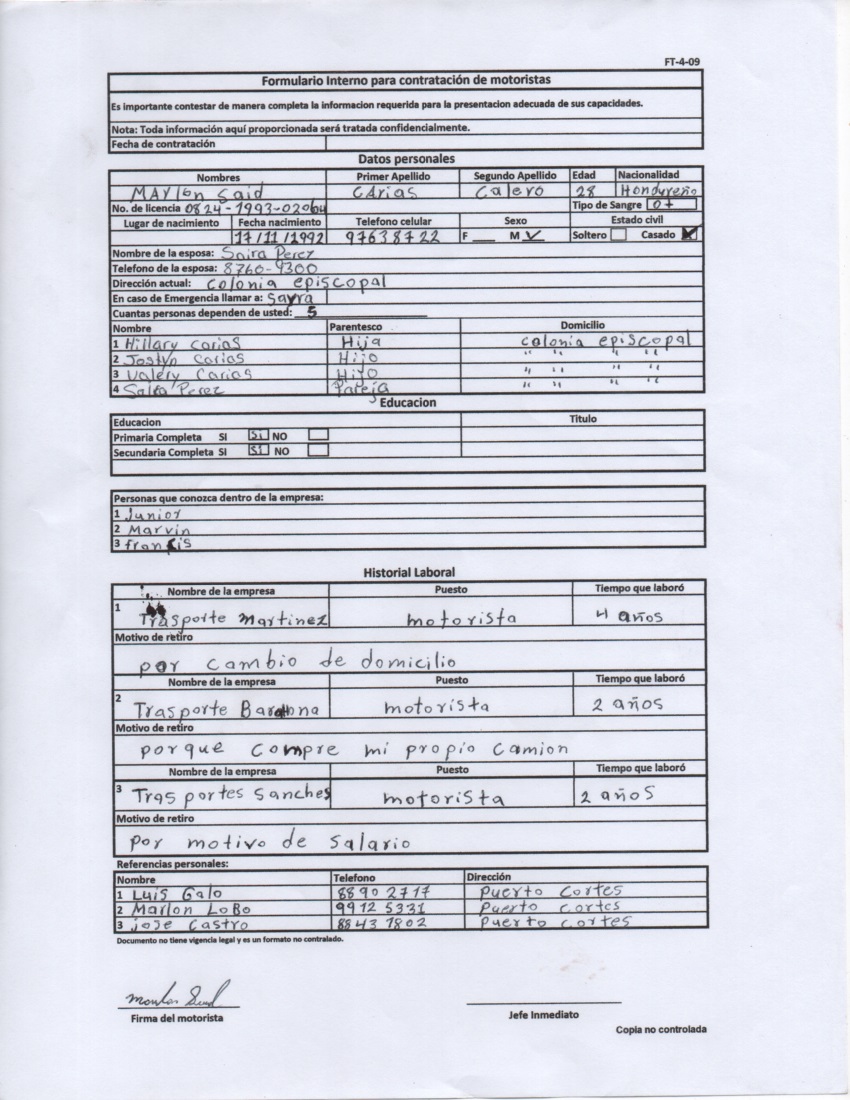 FT-4-09
Formulario Interno para contratación de motoristas
Es importante contestar de manera completa la informacion requerida para la presentacion adecuada de sus capacidades.
Nota: Toda información aquí proporcionada será tratada confidencialmente.
Fecha de contratación
Datos personales
Nombres Primer Apellido Segundo Apellido Edad Nacionalidad
MAYlon Said CArias Calero 28 Hondureño
No. de licencia 0824-1993-02064 Tipo de Sangre O+
Lugar de nacimiento Fecha nacimiento Telefono celular Sexo Estado civil
17/11/1992 97638722 F M Soltero Casado
Nombre de la esposa: Saira Perez
Telefono de la esposa: 8760-9300
Dirección actual: colonia episcopal
En caso de Emergencia llamar a: Sayra
Cuantas personas dependen de usted: 5
Nombre Parentesco Domicilio
1 Hillary carias Hija colonia episcopal
2 Joslyn Carias Hijo " " " "
3 Valery Carias HiJo " " " "
4 Saira Perez Pareja " " " "
Educacion
Educacion Titulo
Primaria Completa SI Si NO
Secundaria Completa SI Si NO
Personas que conozca dentro de la empresa:
1 Junior
2 Marvin
3 francis
Historial Laboral
Nombre de la empresa Puesto Tiempo que laboró
1 Trasporte Martinez motorista 4 años
Motivo de retiro
por cambio de domicilio
Nombre de la empresa Puesto Tiempo que laboró
2 Trasporte Barahona motorista 2 años
Motivo de retiro
porque compre mi propio camion
Nombre de la empresa Puesto Tiempo que laboró
3 Trasportes Sanches motorista 2 años
Motivo de retiro
por motivo de salario
Referencias personales:
Nombre Telefono Dirección
1 Luis Galo 88902717 Puerto Cortes
2 Marlon LoBo 99125331 Puerto cortes
3 jose Castro 88431802 Puerto cortes
Documento no tiene vigencia legal y es un formato no contralado.
Firma del motorista Jefe Inmediato
Copia no controlada